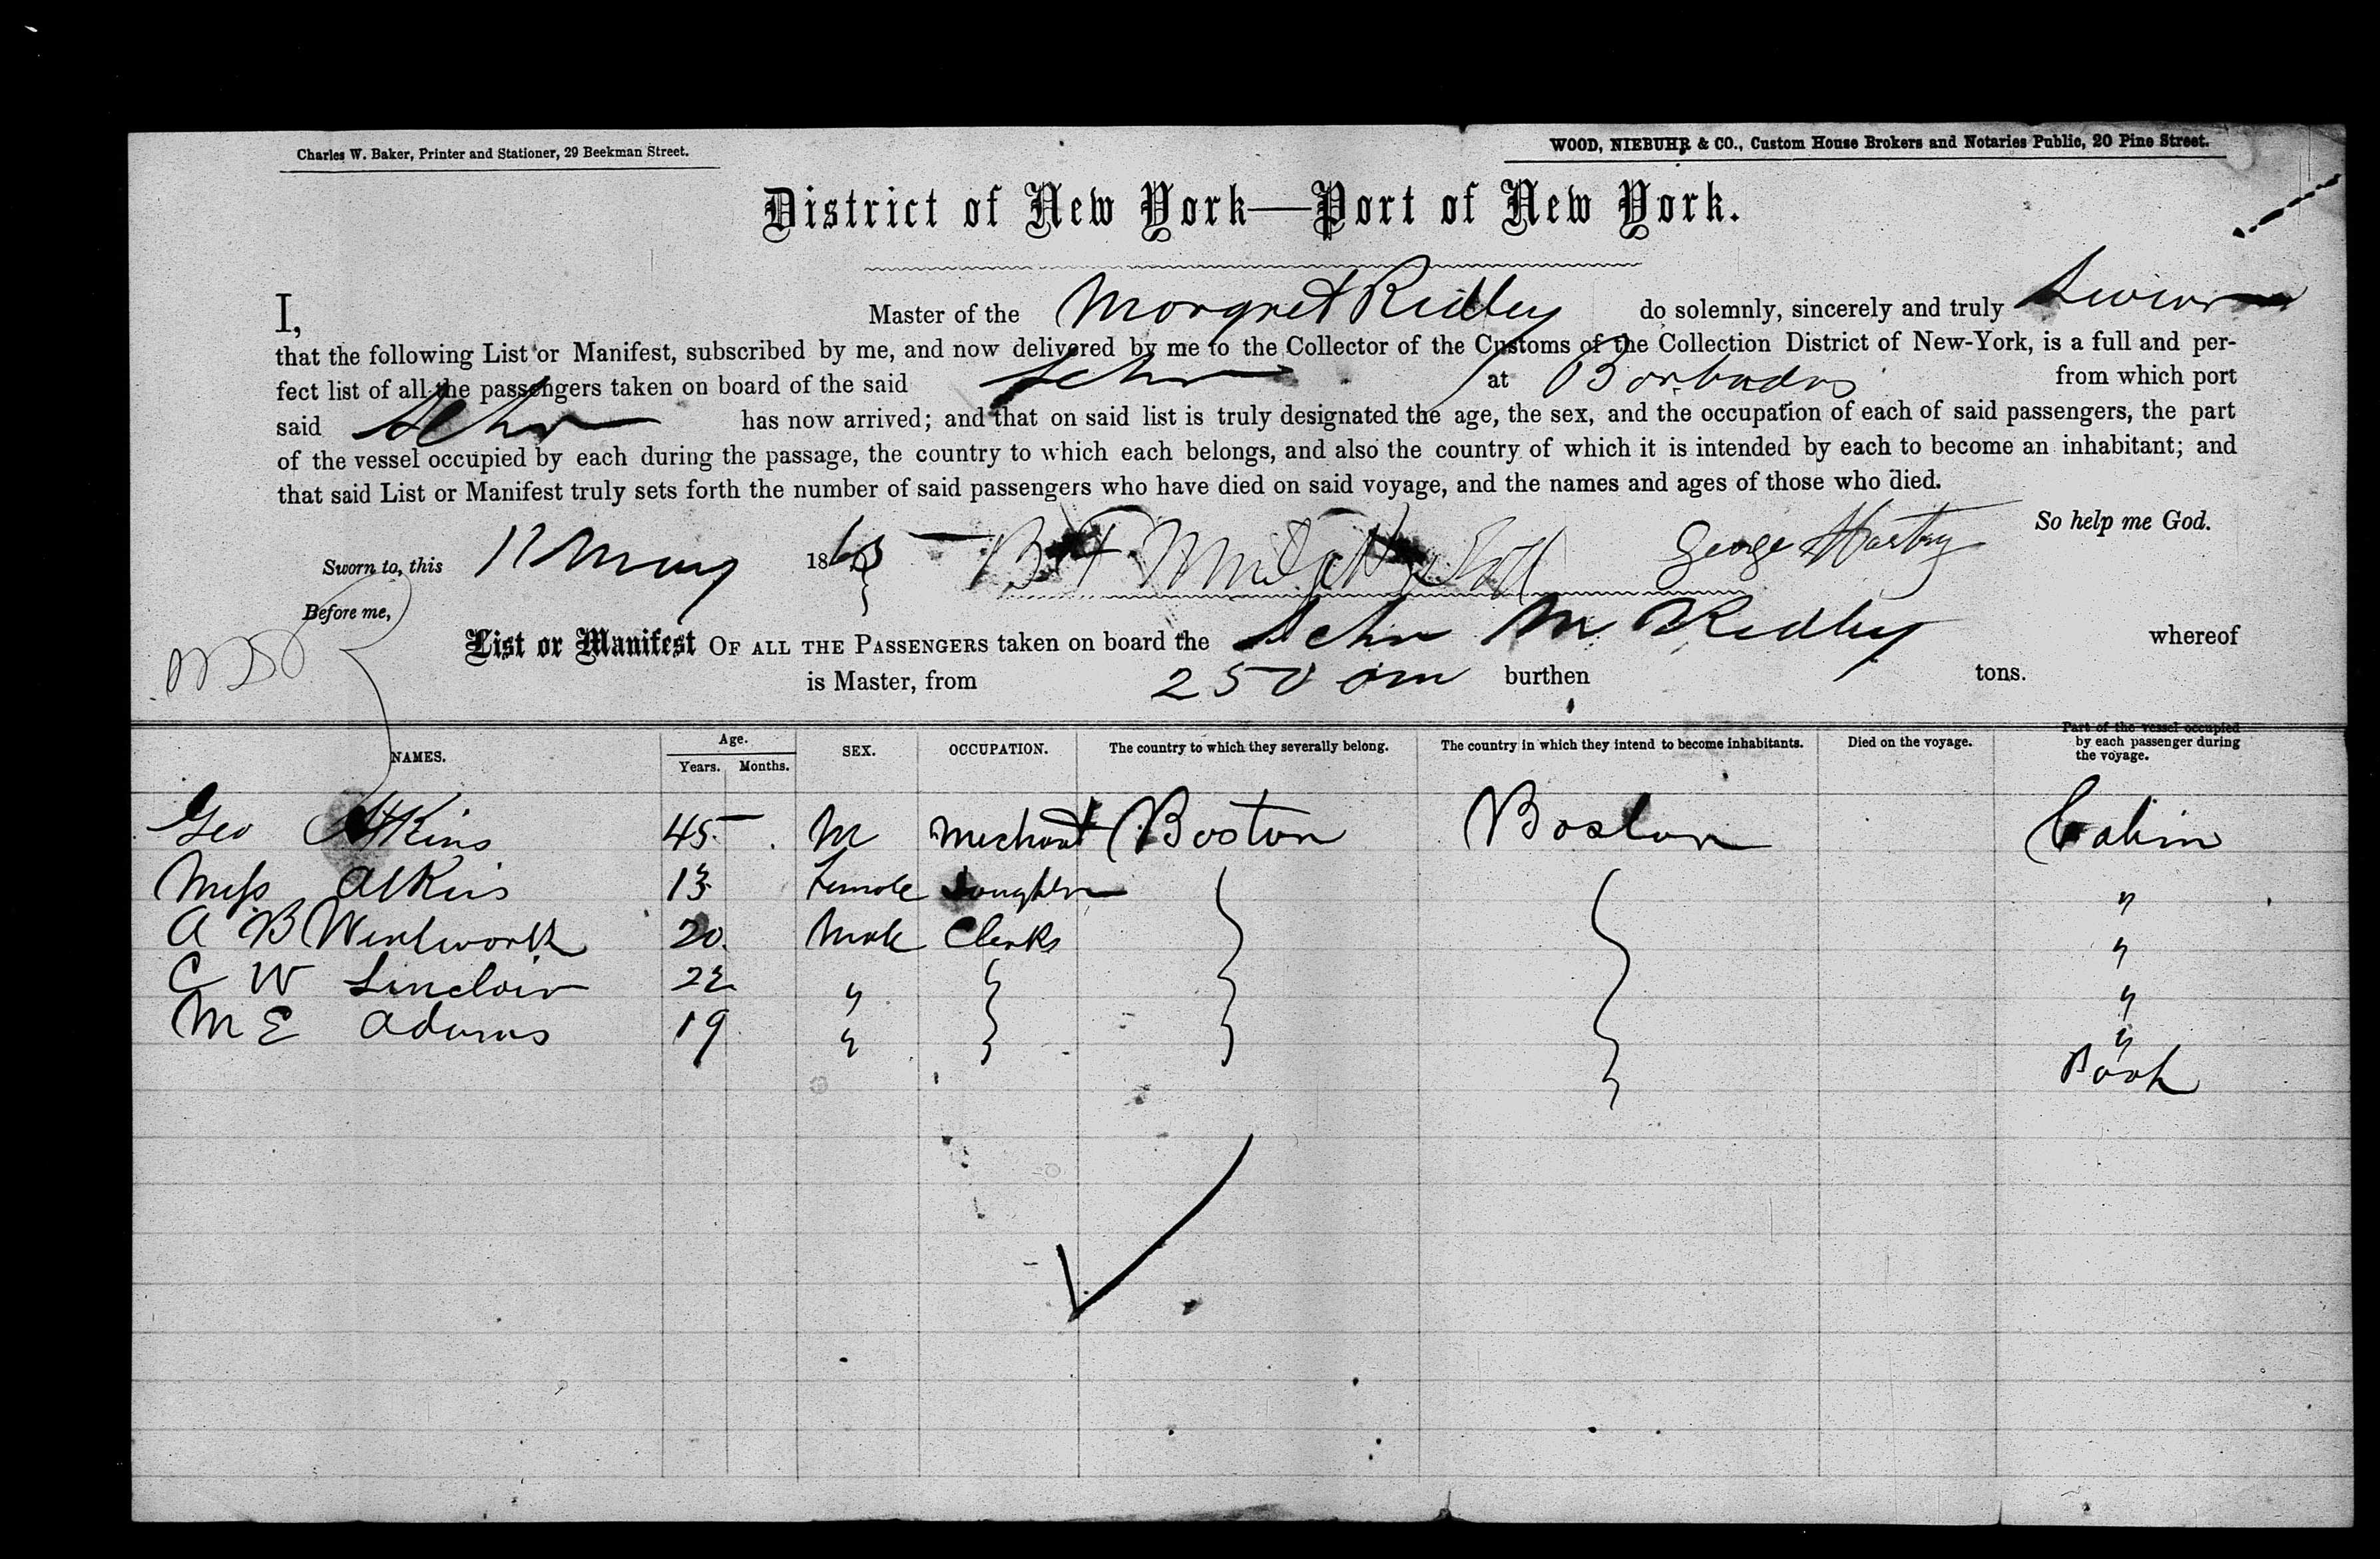 Charles W. Baker, Printer and Stationer, 29 Beekman Street.
WOOD, NIEBUHR & CO., Custom House Brokers and Notaries Public, 20 Pine Street.
District of New York—Port of New York.
I, Master of the Morgret Ridley do solemnly, sincerely and truly
that the following List or Manifest, subscribed by me, and now delivered by me to the Collector of the Customs of the Collection District of New-York, is a full and per-
fect list of all the passengers taken on board of the said Schr at Barbados from which port
said Schr has now arrived; and that on said list is truly designated the age, the sex, and the occupation of each of said passengers, the part
of the vessel occupied by each during the passage, the country to which each belongs, and also the country of which it is intended by each to become an inhabitant; and
that said List or Manifest truly sets forth the number of said passengers who have died on said voyage, and the names and ages of those who died.
So help me God.
Sworn to, this May 186 George
Before me,
List or Manifest OF ALL THE PASSENGERS taken on board the Schr M Ridley whereof
is Master, from 250 burthen tons.
NAMES. Age. Years. Months. SEX. OCCUPATION. The country to which they severally belong. The country in which they intend to become inhabitants. Died on the voyage. Part of the vessel occupied by each passenger during the voyage.
Geo Atkins 45 M Mechant Boston Boston Cabin
Miss Atkins 13 Female Daughter "
A B Wentworth 20 Male Clerks "
C W Sinclair 22 " "
M E Adams 19 " "